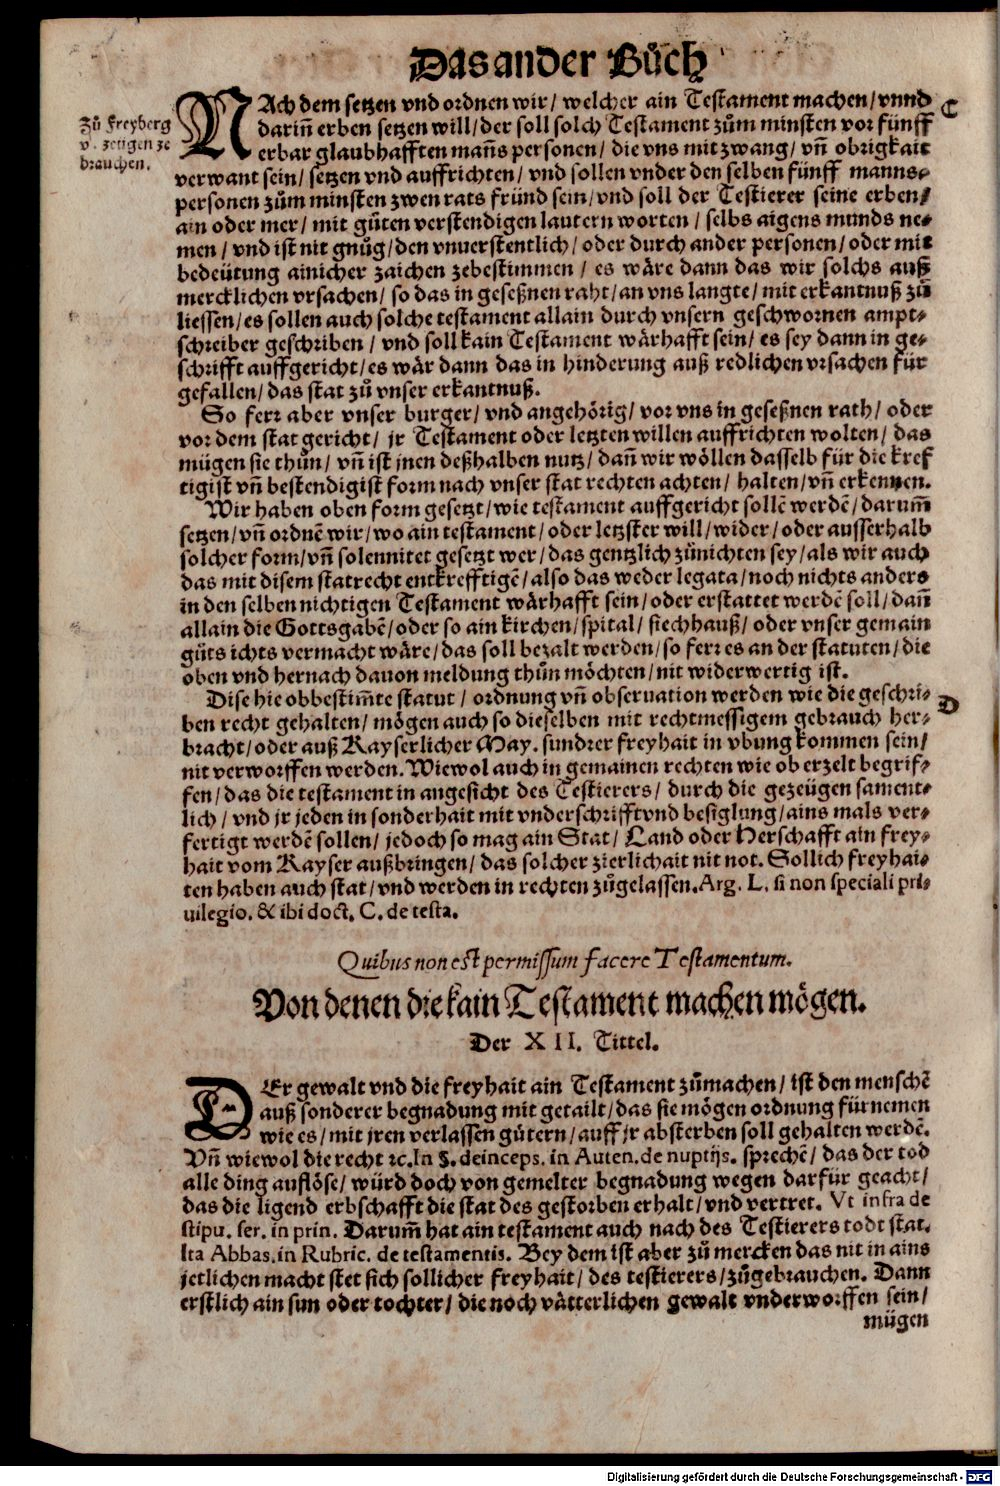 Das ander Bůch
Zů Freyberg
v. zeugen ze
brauchen.
NAch dem setzen vnd ordnen wir / welcher ain Testament machen / vnnd
darin̄ erben setzen will / der soll solch Testament zům minsten vor fünff
erbar glaubhafften man̄s personen / die vns mit zwang / vn̄ obrigkait
verwant sein / setzen vnd auffrichten / vnd sollen vnder den selben fünff manns-
personen zům minsten zwen rats fründ sein / vnd soll der Testierer seine erben /
ain oder mer / mit gůten verstendigen lautern worten / selbs aigens munds ne-
men / vnd ist nit gnůg / den vnuerstentlich / oder durch ander personen / oder mit
bedeütung ainicher zaichen zebestimmen / es wäre dann das wir solchs auß
mercklichen vrsachen / so das in geseßnen raht / an vns langte / mit erkantnuß zů
liessen / es sollen auch solche testament allain durch vnsern geschwornen ampt-
schreiber geschriben / vnd soll kain Testament wärhafft sein / es sey dann in ge-
schrifft auffgericht / es wär dann das in hinderung auß redlichen vrsachen für
gefallen / das stat zů vnser erkantnuß.
So ferr aber vnser burger / vnd angehörig / vor vns in geseßnen rath / oder
vor dem stat gericht / jr Testament oder letzten willen auffrichten wolten / das
mügen sie thůn / vn̄ ist jnen deßhalben nutz / dan̄ wir wöllen dasselb für die kref
tigist vn̄ bestendigist form nach vnser stat rechten achten / halten / vn̄ erkennen.
Wir haben oben form gesetzt / wie testament auffgericht sollē werdē / darum̄
setzen / vn̄ ordnē wir / wo ain testament / oder letzster will / wider / oder ausserhalb
solcher form / vn̄ solennitet gesetzt wer / das gentzlich zůnichten sey / als wir auch
das mit disem statrecht entkrefftigē / also das weder legata / noch nichts anders
in den selben nichtigen Testament wärhafft sein / oder erstattet werdē soll / dan̄
allain die Gottsgabē / oder so ain kirchen / spital / siechhauß / oder vnser gemain
gůts ichts vermacht wäre / das soll bezalt werden / so ferr es an der statuten / die
oben vnd hernach dauon meldung thůn möchten / nit widerwertig ist.
Dise hie obbestim̄te statut / ordnung vn̄ obseruation werden wie die geschri-
ben recht gehalten / mögen auch so dieselben mit rechtmessigem gebrauch her-
bracht / oder auß Kayserlicher May. sundrer freyhait in vbung kommen sein /
nit verworffen werden. Wiewol auch in gemainen rechten wie ob erzelt begrif-
fen / das die testament in angesicht des Testierers / durch die gezeügen sament-
lich / vnd jr jeden in sonderhait mit vnderschrifft vnd besiglung / ains mals ver-
fertigt werdē sollen / jedoch so mag ain Stat / Land oder Herschafft ain frey-
hait vom Kayser außbringen / das solcher zierlichait nit not. Sollich freyhai-
ten haben auch stat / vnd werden in rechten zůgelassen. Arg. L. si non speciali pri-
uilegio. & ibi doct. C. de testa.
C
D
Quibus non est permissum facere Testamentum.
Von denen die kain Testament machen mögen.
Der XII. Tittel.
DEr gewalt vnd die freyhait ain Testament zůmachen / ist den menschē
auß sonderer begnadung mit getailt / das sie mögen ordnung fürnemen
wie es / mit jren verlassen gůtern / auff jr absterben soll gehalten werdē.
Vn̄ wiewol die recht ꝛc. In §. deinceps. in Auten. de nuptijs. sprechē / das der tod
alle ding auflöse / würd doch von gemelter begnadung wegen darfür geacht /
das die ligend erbschafft die stat des gestorben erhalt / vnd vertret. Vt infra de
stipu. ser. in prin. Darum̄ hat ain testament auch nach des Testierers todt stat.
Ita Abbas. in Rubric. de testamentis. Bey dem ist aber zů mercken das nit in ains
jetlichen macht stet sich sollicher freyhait / des testierers / zůgebrauchen. Dann
erstlich ain sun oder tochter / die noch vätterlichen gewalt vnderworffen sein /
mügen
Digitalisierung gefördert durch die Deutsche Forschungsgemeinschaft - DFG